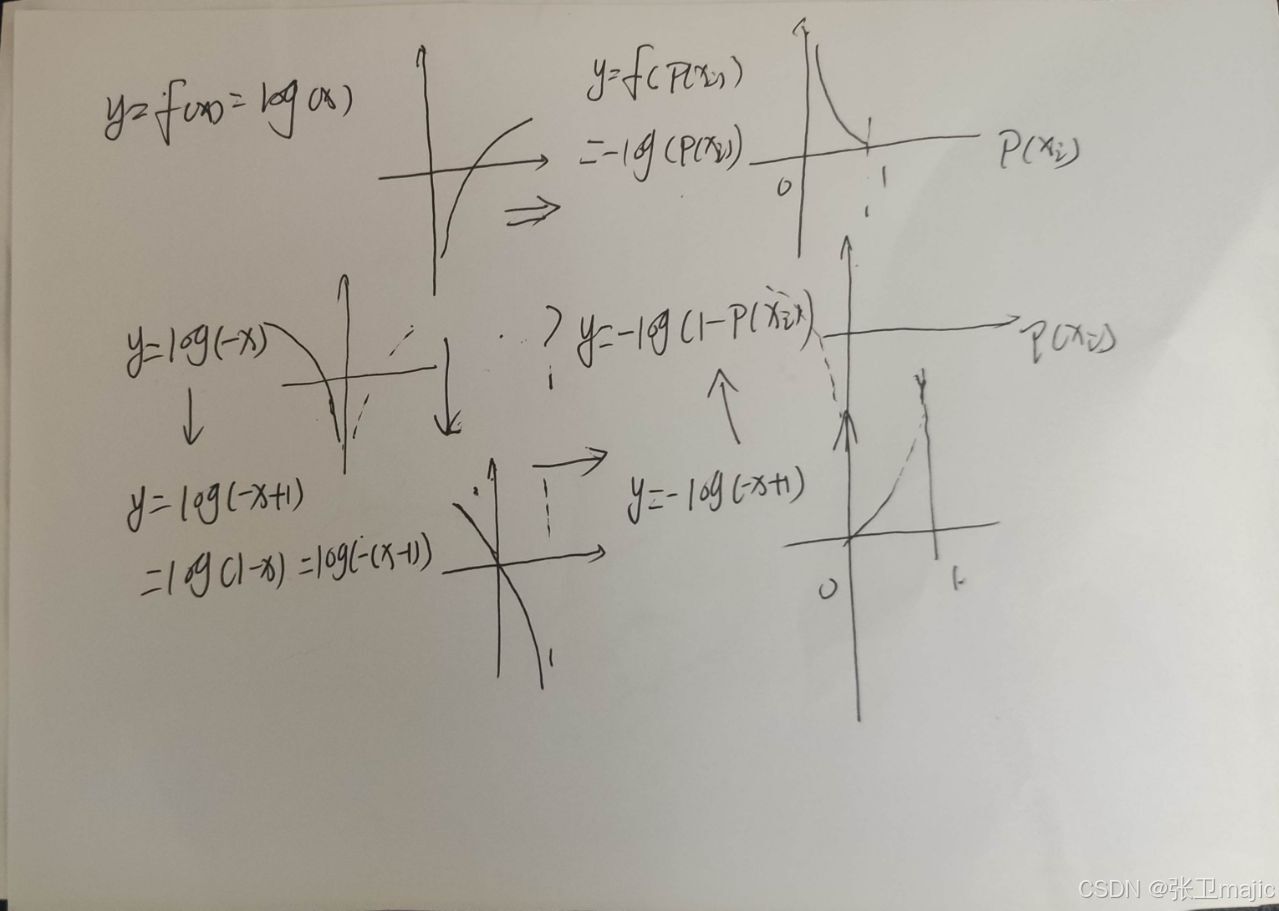 y=f(x)=log(x)
y=f(P(xi))
=-log(P(xi))
P(xi)
0
1
y=log(-x)
?
y=-log(1-P(xi))
P(xi)
y=log(-x+1)
=log(1-x)=log(-(x-1))
1
y=-log(-x+1)
0
1
CSDN @张卫majic